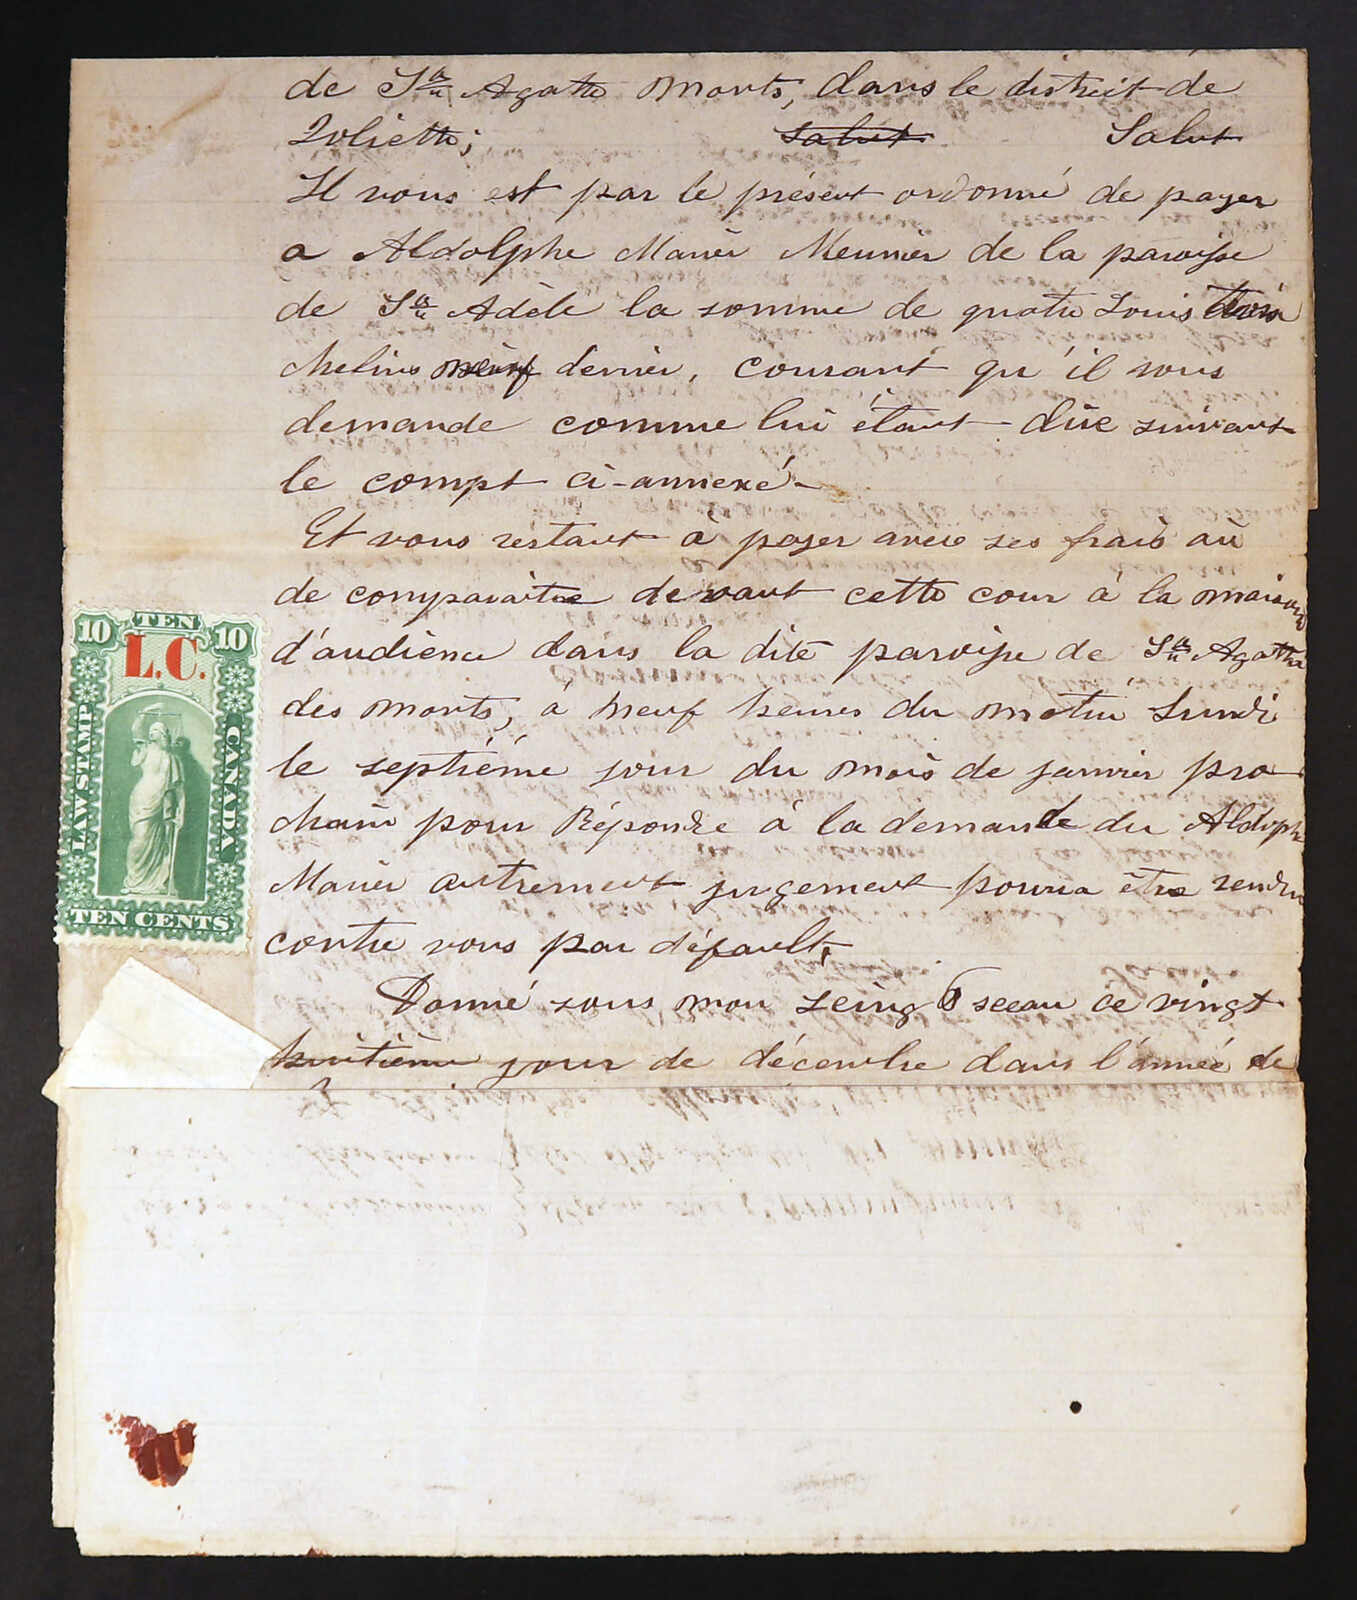 de Ste Agathe monts, dans le district de
Joliette; Salut Salut
Il vous est par le présent ordonné de payer
a Aldolphe Marier Meunier de la paroisse
de Ste Adèle la somme de quatre Louis trois
chelins neuf denier, courant qu'il vous
demande comme lui étant düe suivant
le compt ci-annexé-
Et vous restant a payer avec ses frais au
de comparaitre devant cette cour à la maison
d'audience dans la dite paroisse de Ste Agathe
des monts, à neuf heures du matin Lundi
le septiéme jour du mois de janvier pro-
chain pour Répondre à la demande du Aldolph
Marier autrement jugement pourra être rendu
contre vous par défault,
Donné sous mon seing & sceau ce vingt
huitième jour de décembre dans l'année de
10 TEN 10
L.C.
LAW STAMP
CANADA
TEN CENTS